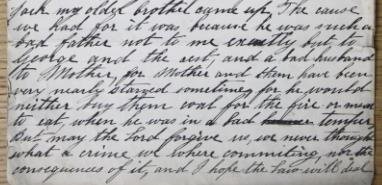 Jack my older brother came up, The cause
we had for it was because he was such a
bad father not to me exactly but to
George and the rest, and a bad husband
to Mother, for Mother and them have been
very nearly starved sometimes, for he would
neither buy them coal for the fire or meat
to eat, when he was in a bad temper
But may the Lord forgive us, we never thought
what a crime we where commiting, nor the
consequences of it, and I hope the Law will deal